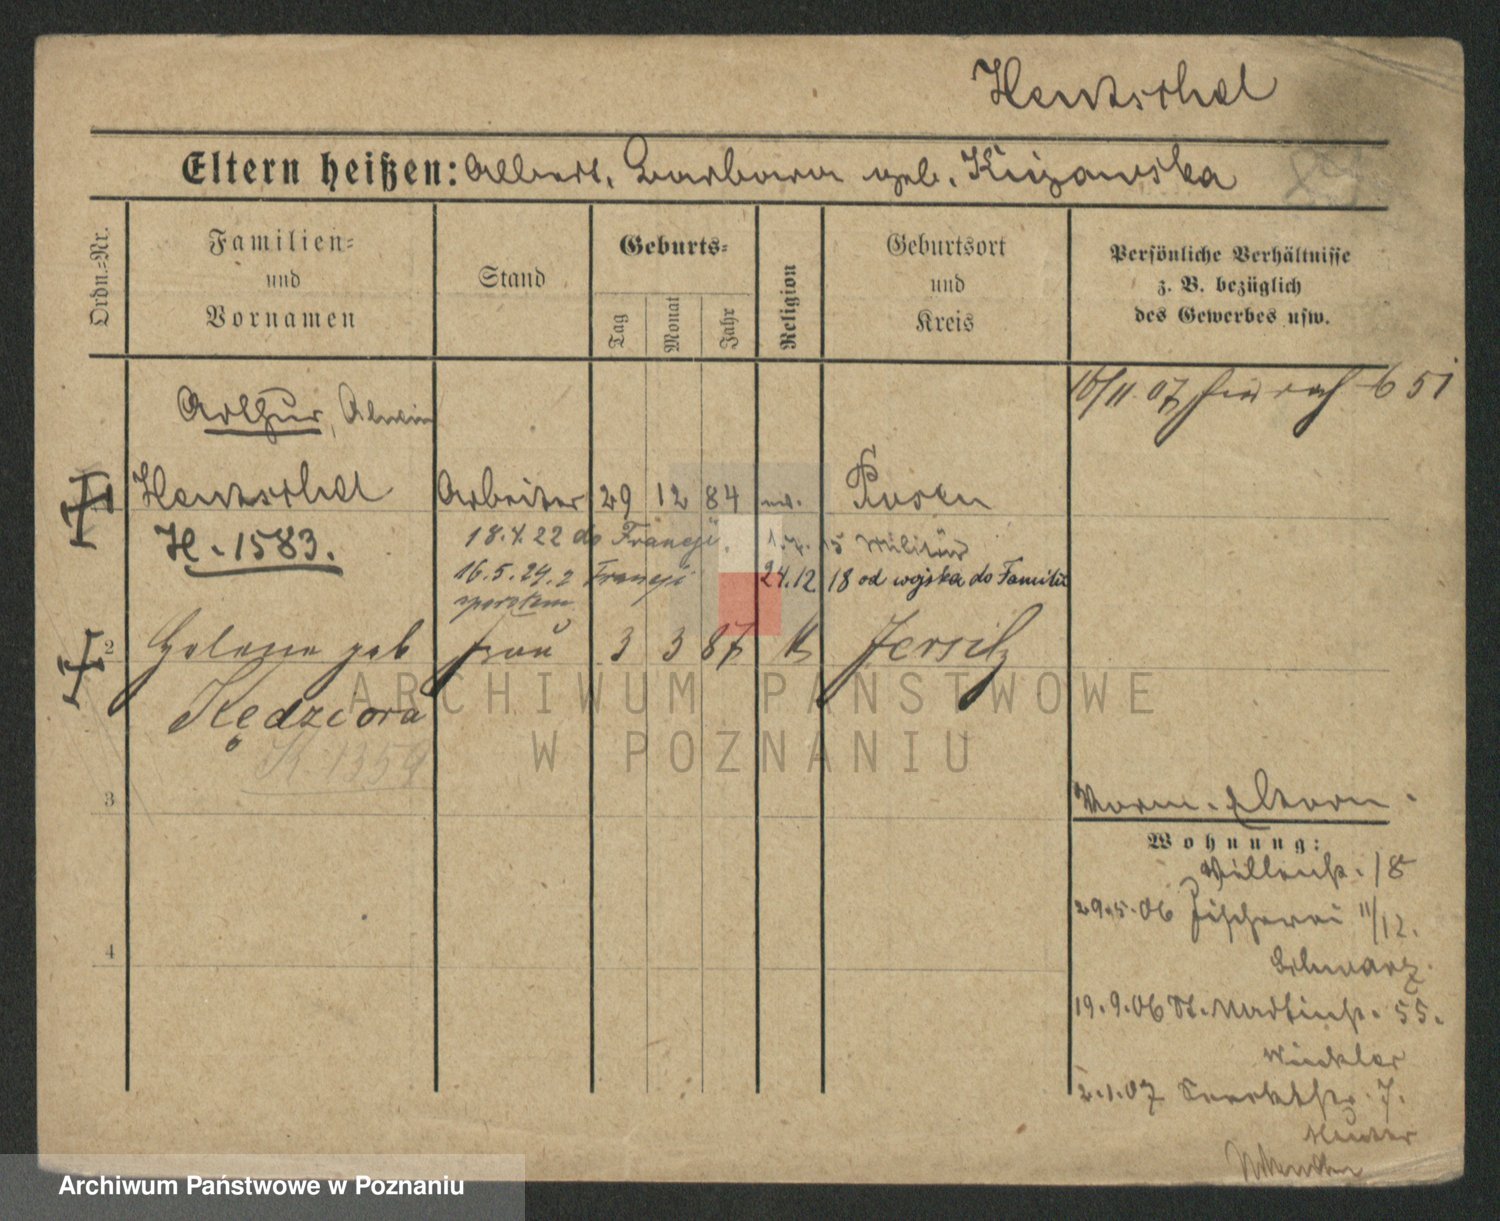 Hentschel
Eltern heißen: Albert, Barbara geb. Kujawska
Ordn.=Nr.
Familien=
und
Vornamen
Stand
Geburts=
Tag
Monat
Jahr
Religion
Geburtsort
und
Kreis
Persönliche Verhältnisse
z. B. bezüglich
des Gewerbes usw.
16/11. 07 651
Arthur, Alwin
1 Hentschel Arbeiter 29 12 84 ev. Posen
H. 1583.
18.4.22 do Francji. 1.7.15 Militär
16.5.24 z Francji 24.12 18 od wojska do Familii
spowrotem
2 Helene geb Frau 3 3 87 k Jersitz
Kędziora
K. 1359
3
4
Vorm. Eltern.
Wohnung:
Villenst. 18
29.5.06 Fischerei 11/12.
Schwarz.
19.9.06 St. Martinst. 55.
Winkler
2.1.07 7.
ARCHIWUM PAŃSTWOWE
W POZNANIU
Archiwum Państwowe w Poznaniu